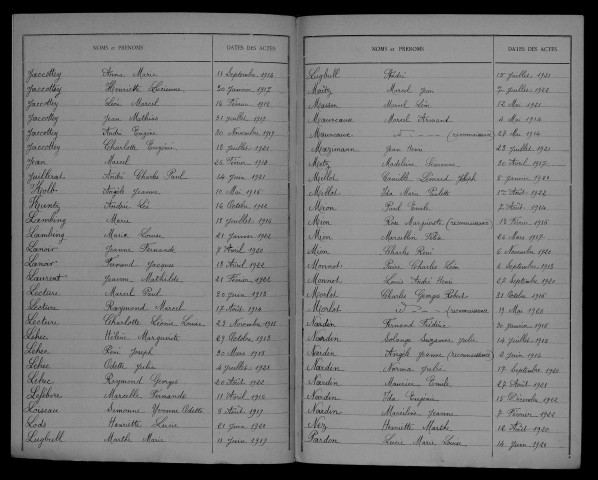 NOMS et PRÉNOMS DATES DES ACTES
Jaccottey Anna Marie 11 Septembre 1914
Jaccottey Henriette Lucienne 20 Janvier 1917
Jaccottey Léon Marcel 14 Février 1912
Jaccottey Jean Mathias 31 Juillet 1917
Jaccottey André Eugène 20 Novembre 1919
Jaccottey Charlotte Eugénie 12 Juillet 1921
Jean Marcel 25 Février 1913
Juilleret André Charles Paul 14 Juin 1921
Kolb Angèle Jeanne 10 Mai 1915
Kuntz Andrée 16 Octobre 1922
Lambing Marie 18 Juillet 1914
Lambing Marie Louise 21 Janvier 1922
Lanoir Jeanne Fernande 7 Avril 1920
Lanoir Fernand Jacques 13 Avril 1922
Laurent Jeanne Mathilde 21 Février 1922
Lecture Marcel Paul 20 Juin 1913
Lecture Raymond Marcel 17 Août 1914
Lecture Charlotte Léonie Louise 23 Novembre 1915
Léhec Hélène Marguerite 29 Octobre 1913
Léhec René Joseph 30 Mars 1915
Léhec Odette Julia 4 Juillet 1921
Léhec Raymond Georges 20 Août 1922
Lefebvre Marcelle Fernande 11 Avril 1920
Loiseau Simonne Yvonne Odette 8 Août 1917
Lods Henriette Lucie 21 Juin 1920
Lugbull Marthe Marie 11 Juin 1919
NOMS et PRÉNOMS DATES DES ACTES
Lugbull André 15 Juillet 1921
Maître Marcel Jean 7 Juillet 1922
Masson Marcel Léon 12 Mai 1921
Mauvaux Marcel Armand 4 Mai 1914
Mauvaux d° (reconnaissance) 28 Mai 1914
Mazimann Jean Henri 23 Juillet 1921
Metz Madeleine Suzanne 30 Avril 1917
Millot Camille Léonard Joseph 5 Janvier 1921
Millot Ida Marie Paulette 1er Août 1922
Miron Paul Emile 7 Août 1914
Mion Rose Marguerite (reconnaissance) 18 Février 1915
Mion Marcellin Félix 26 Mars 1917
Mion Charles René 6 Novembre 1920
Monnot Pierre Charles Léon 6 Septembre 1913
Monnot Louis André Henri 27 Septembre 1920
Morlot Charles Georges Robert 31 Octobre 1915
Morlot d° (reconnaissance) 19 Mai 1920
Nardin Fernand Frédéric 30 Janvier 1915
Nardin Solange Suzanne Julie 14 Juillet 1915
Nardin Angèle Jeanne (reconnaissance) 2 Juin 1915
Nardin Norma Julie 17 Septembre 1920
Nardin Maurice Emile 27 Août 1921
Nardin Ida Eugénie 15 Décembre 1922
Nardin Marceline Jeanne 7 Février 1922
Nez Henriette Marthe 12 Août 1920
Pardon Lucie Marie Louise 14 Juin 1920